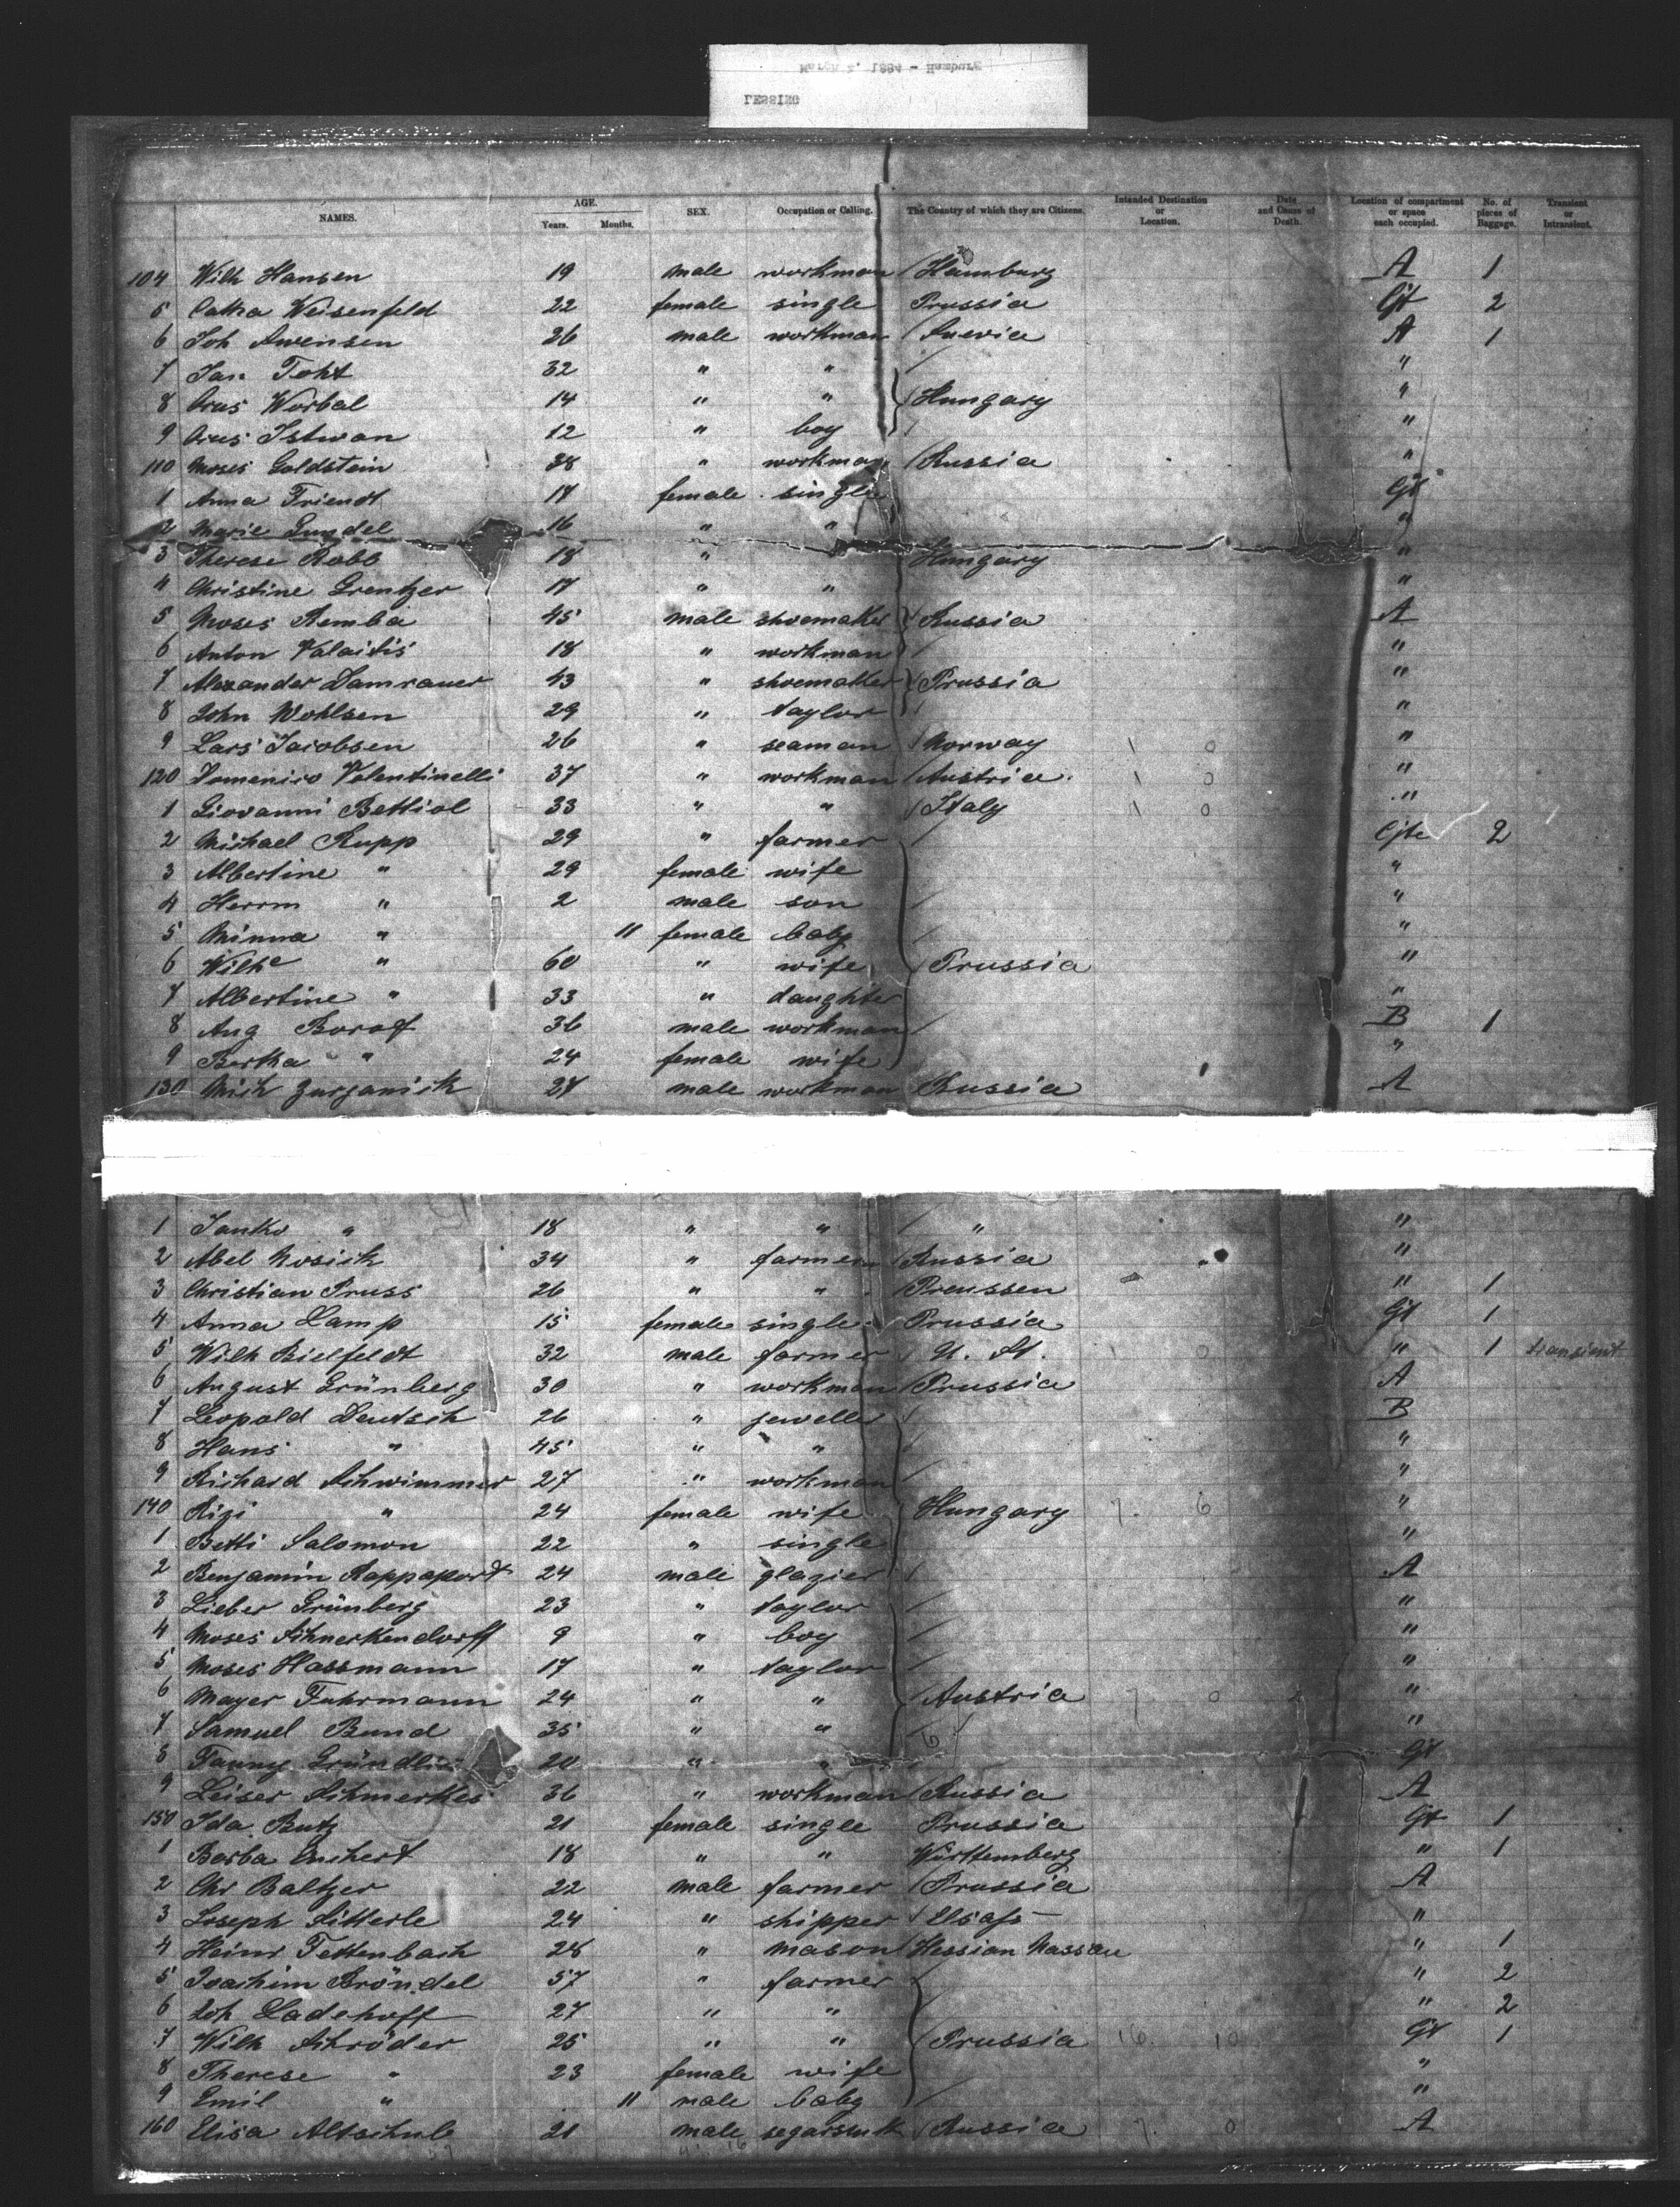 March 2, 1884 - Hamburg
LESSING
NAMES. AGE. Years. Months. SEX. Occupation or Calling. The Country of which they are Citizens. Intended Destination or Location. Date and Cause of Death. Location of compartment or space each occupied. No. of pieces of Baggage. Transient or Intransient.
104 Wilh Hansen 19 male workman Hamburg A 1
5 Catha Weisenfeld 22 female single Prussia Gt 2
6 Joh Swensen 26 male workman Suevia A 1
7 Jan Toht 32 " " "
8 Orus Worbal 14 " " Hungary "
9 Orus Istwan 12 " boy "
110 Moses Goldstein 38 " workman Russia "
1 Anna Friendt 17 female single Gt
2 Marie Gundel 16 " " "
3 Therese Robb 18 " Hungary "
4 Christine Grentzer 17 " " "
5 Moses Remba 45 male shoemaker Russia A
6 Anton Valaitis 18 " workman "
7 Alexander Damrauer 43 " shoemaker Prussia "
8 John Wohlsen 29 " taylor "
9 Lars Jacobsen 26 " seaman Norway 1 0 "
120 Domenico Valentinelli 37 " workman Austria 1 0 "
1 Giovanni Bettiol 33 " " Italy 1 0 "
2 Michael Rupp 29 " farmer Gte 2
3 Albertine " 29 female wife "
4 Herrm " 2 male son "
5 Minna " 11 female baby "
6 Wilhe " 60 " wife Prussia "
7 Albertine " 33 " daughter "
8 Aug 36 male workman B 1
9 Bertha " 24 female wife "
130 Mich Zurganich 27 male workman Russia A
1 Janko " 18 " " " "
2 Abel Kosick 34 " farmer Russia "
3 Christian Pruss 26 " " Preussen " 1
4 Anna Lamp 15 female single Prussia Gt 1
5 Wilh Bielfeldt 32 male farmer U. St. 0 " 1 transient
6 August Grünberg 30 " workman Prussia A
7 Leopold Deutsch 26 " jeweller B
8 Hans " 45 " " "
9 Richard Schwimmer 27 " workman "
140 Rizi " 24 female wife Hungary 7. 6 "
1 Betti Salomon 22 " single "
2 Benjamin Rappaport 24 male glazier A
3 Lieber Grünberg 23 " taylor "
4 Moses Schnerkendorff 9 " boy "
5 Moses Hassmann 17 " taylor "
6 Mayer Fuhrmann 24 " " Austria 7 0 "
7 Samuel Bund 35 " " "
8 Fanny 20 " " Gt
9 Leiser Schmerkes 36 " workman Russia A
150 Ida Butz 21 female single Prussia Gt 1
1 Barba Enchert 18 " " Württemberg " 1
2 Chr Baltzer 22 male farmer Prussia A
3 Joseph Sitterle 24 " shipper Elsass "
4 Heinr Tettenbach 28 " mason Hessian Nassau " 1
5 Joachim Bröndel 57 " farmer " 2
6 Joh Ladehoff 27 " " " 2
7 Wilh Schröder 25 " " Prussia 16. 10 Gt 1
8 Therese " 23 female wife "
9 Emil " 11 male baby "
160 Elisa Altschule 21 male segarsmk Russia 7. 0 A